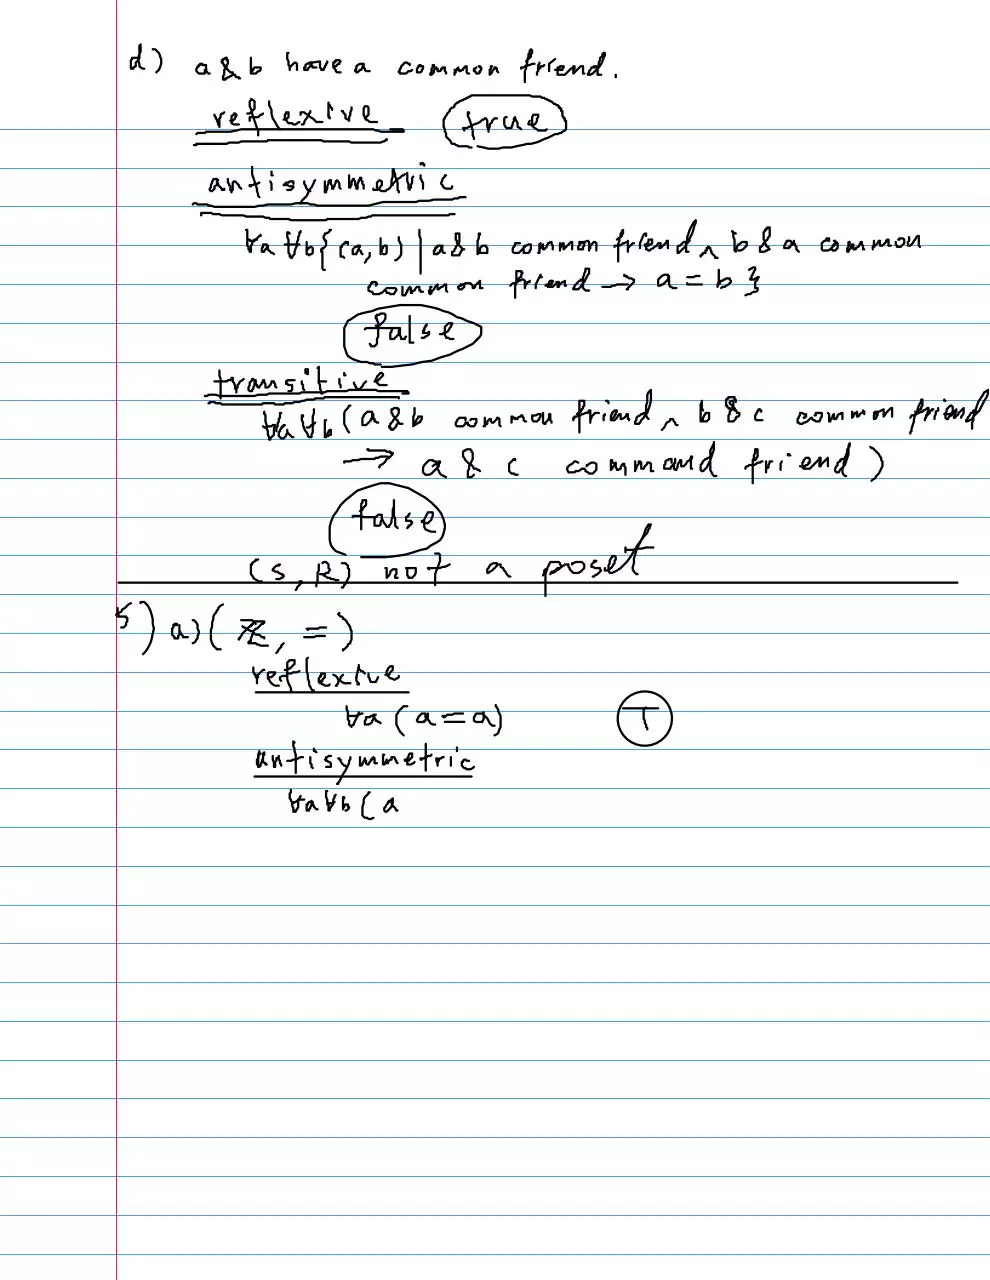 d) a & b have a common friend.
reflexive true
antisymmetric
∀a ∀b{(a,b) | a & b common friend ∧ b & a common
common friend → a = b }
false
transitive
∀a ∀b (a & b common friend ∧ b & c common friend
→ a & c command friend )
false
(S, R) not a poset
5) a) ( ℤ, = )
reflexive
∀a (a = a) T
antisymmetric
∀a ∀b (a